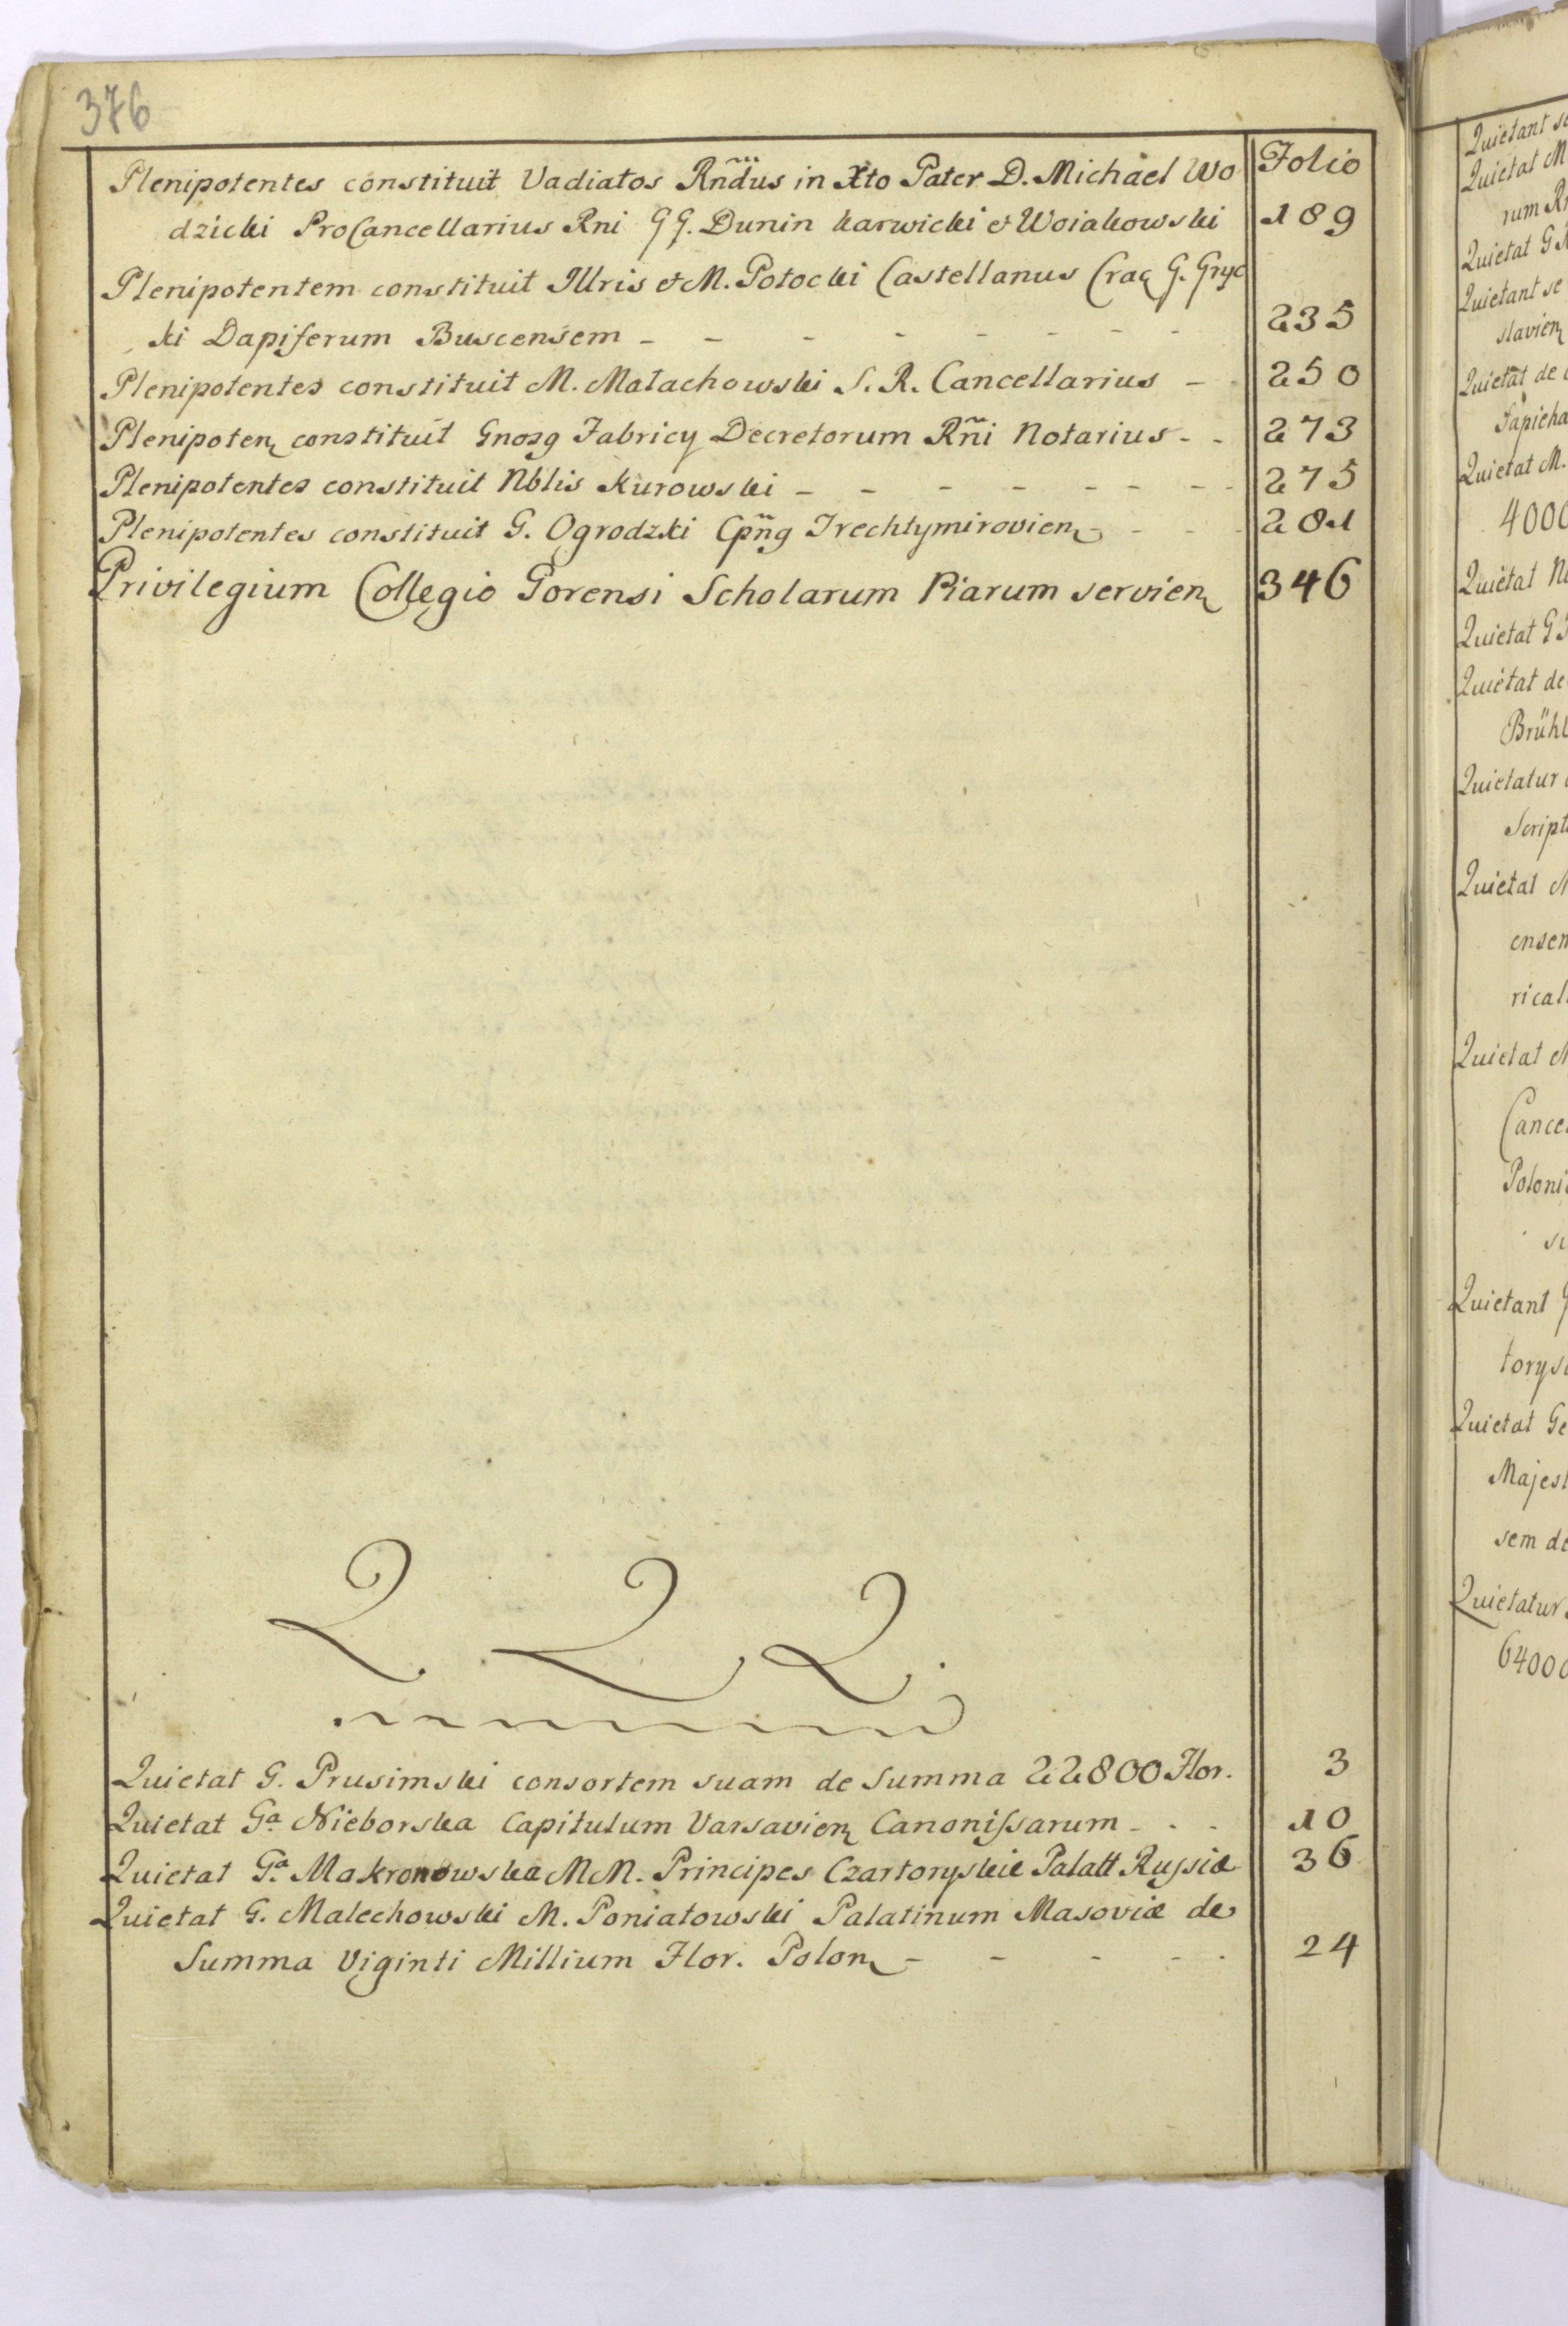 376
Folio
Plenipotentes constituit Vadiatos Rñdus in Xto Pater D. Michael Wo
dzicki ProCancellarius Rni GG. Dunin Karwicki & Woiakowski 189
Plenipotentem constituit Illris & M. Potocki Castellanus Crac G. Gryc
ki Dapiferum Buscensem - - - - - - - 235
Plenipotentes constituit M. Małachowski S. R. Cancellarius - - 250
Plenipoten constituit Gnosg Fabricy Decretorum Rñi Notarius - - 273
Plenipotentes constituit Nblis Kurowski - - - - - - - - 275
Plenipotentes constituit G. Ogrodzki Cpñg Trechtymirovien - - - 281
Privilegium Collegio Gorensi Scholarum Piarum servien 346
Q. Q. Q.
Quietat G. Prusimski consortem suam de Summa 22800 Flor. 3
Quietat Ga. Nieborska Capitulum Varsavien Canonissarum - - - 10
Quietat Ga. Makronowska MM. Principes Czartoryskie Palatt Russiæ 36
Quietat G. Malechowski M. Poniatowski Palatinum Masoviæ de
Summa Viginti Millium Flor. Polon - - - - - 24
Quietant se
Quietat M
rum R
Quietat G
Quietant se
slavien
Quietat de
Sapieha
Quietat M.
4000
Quietat N
Quietat G
Quietat de
Brühl
Quietatur
Script
Quietat
ensem
rical
Quietat
Cance
Poloni
su
Quietant
torys
Quietat Ge
Majest
sem de
Quietatur
64000